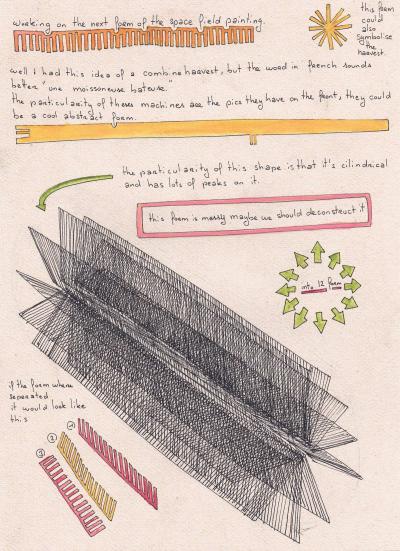 working on the next form of the space field painting.
this form
could
also
symbolise
the
harvest.
well I had this idea of a combine harvest, but the word in french sounds
beter, "une moissoneuse bateuse."
the particularity of theses machines are the pics they have on the front, they could
be a cool abstract form.
the particularity of this shape is that it's cilindrical
and has lots of peaks on it.
this form is messy maybe we should deconstruct it
into 12 form
if the form where
separated
it would look like
this
1
2
3